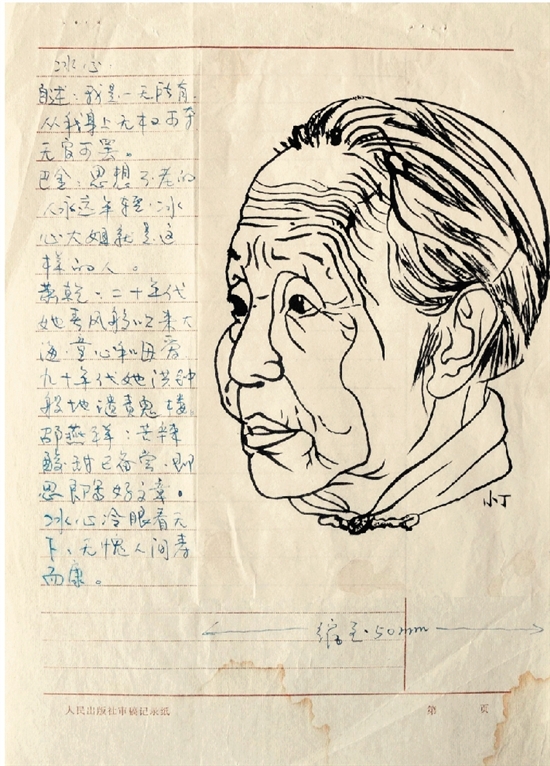 冰心
自述：我是一无所有.
从我身上无权可夺
无官可罢。
巴金：思想不老的
人永远年轻.冰
心大姐就是这
样的人。
萧乾：二十年代
她春风般以 大
海、童心和母爱
九十年代她洪钟
般地谴责愚
邵燕祥：苦辣
酸甜已备尝.即
思即 好文章。
冰心冷眼看天
下、无愧人间寿
而康。
小丁
缩至50mm
人民出版社审稿记录纸 第 页